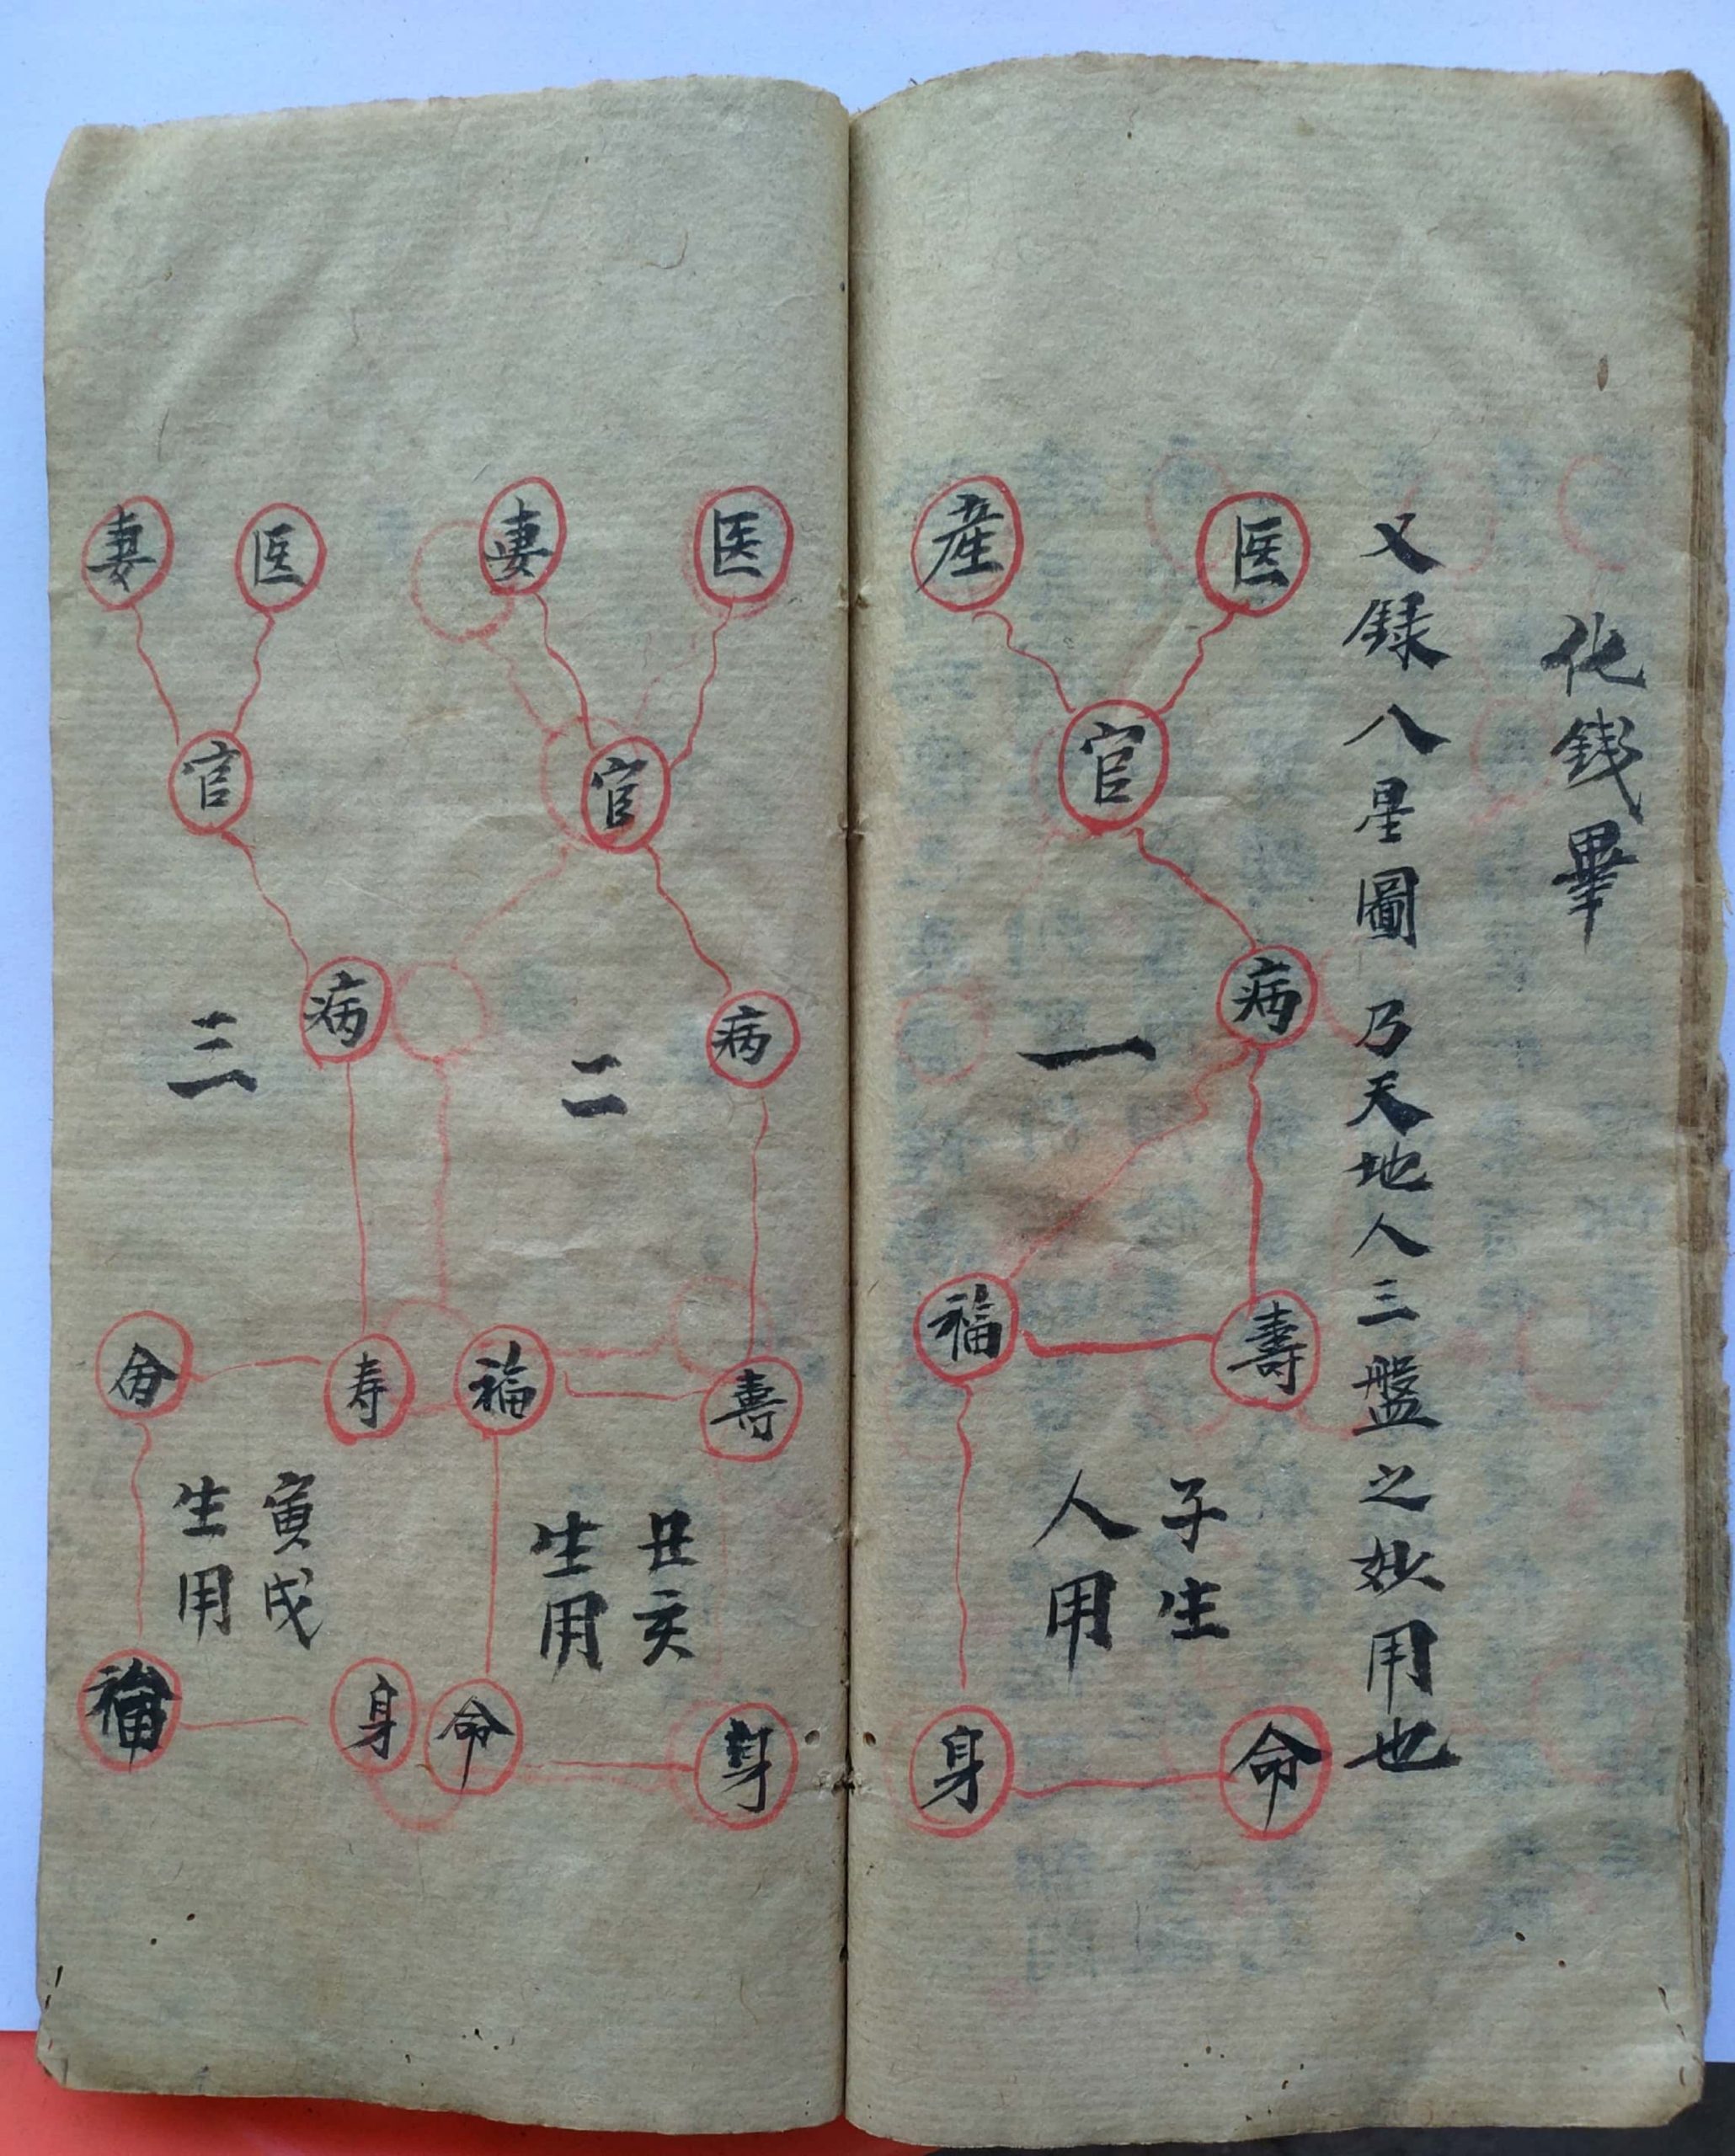 化銭畢
又録八星圖乃天地人三盤之妙用也
医
産
官
病
一
福
壽
子生
人用
身
命
医
妻
官
病
二
福
壽
丑亥
生用
命
身
医
妻
官
病
三
寿
寅戌
生用
福
身